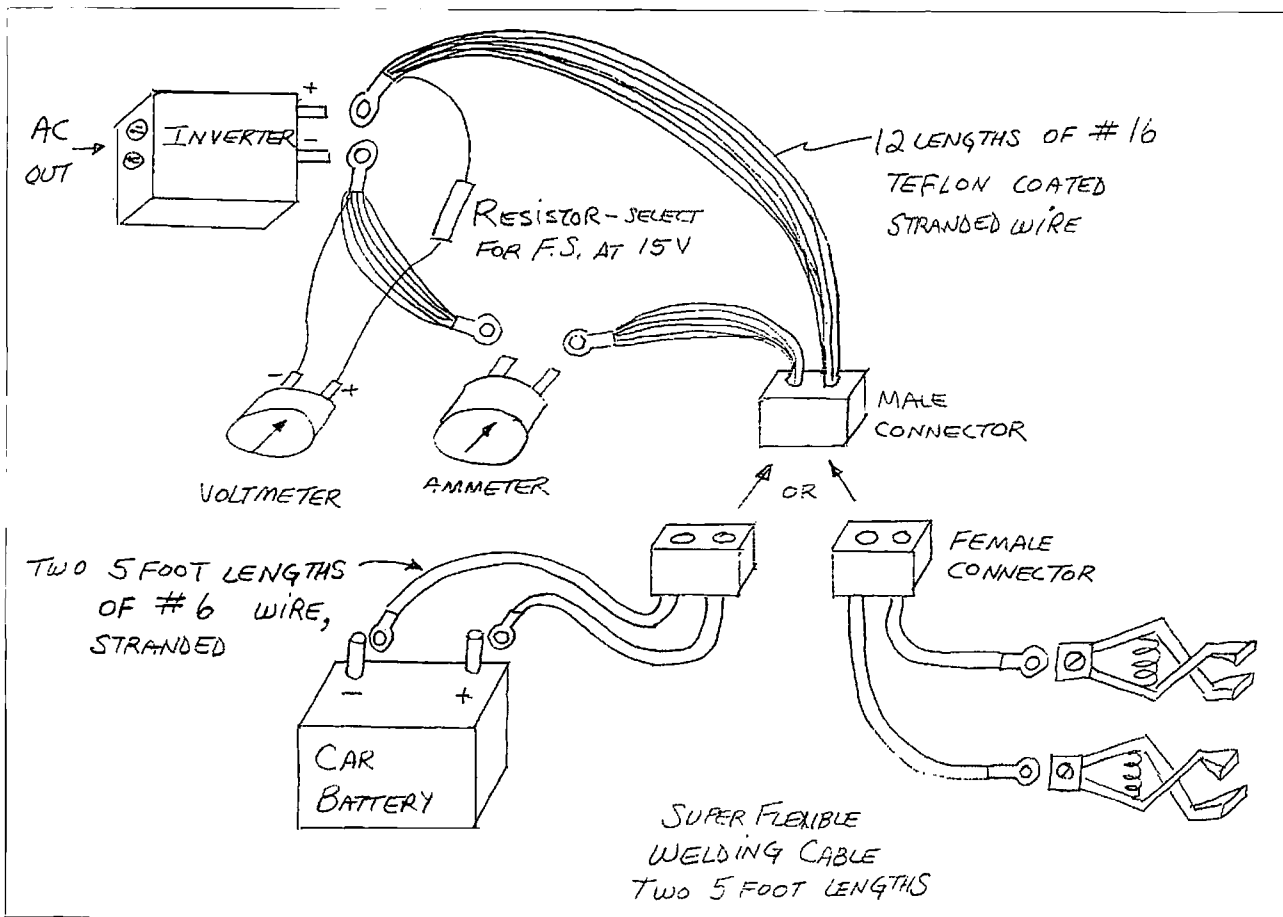 AC
OUT
INVERTER
+
-
12 LENGTHS OF #16
TEFLON COATED
STRANDED WIRE
RESISTOR - SELECT
FOR F.S. AT 15V
-
+
VOLTMETER
AMMETER
MALE
CONNECTOR
OR
TWO 5 FOOT LENGTHS
OF #6 WIRE,
STRANDED
FEMALE
CONNECTOR
-
+
CAR
BATTERY
SUPER FLEXIBLE
WELDING CABLE
TWO 5 FOOT LENGTHS